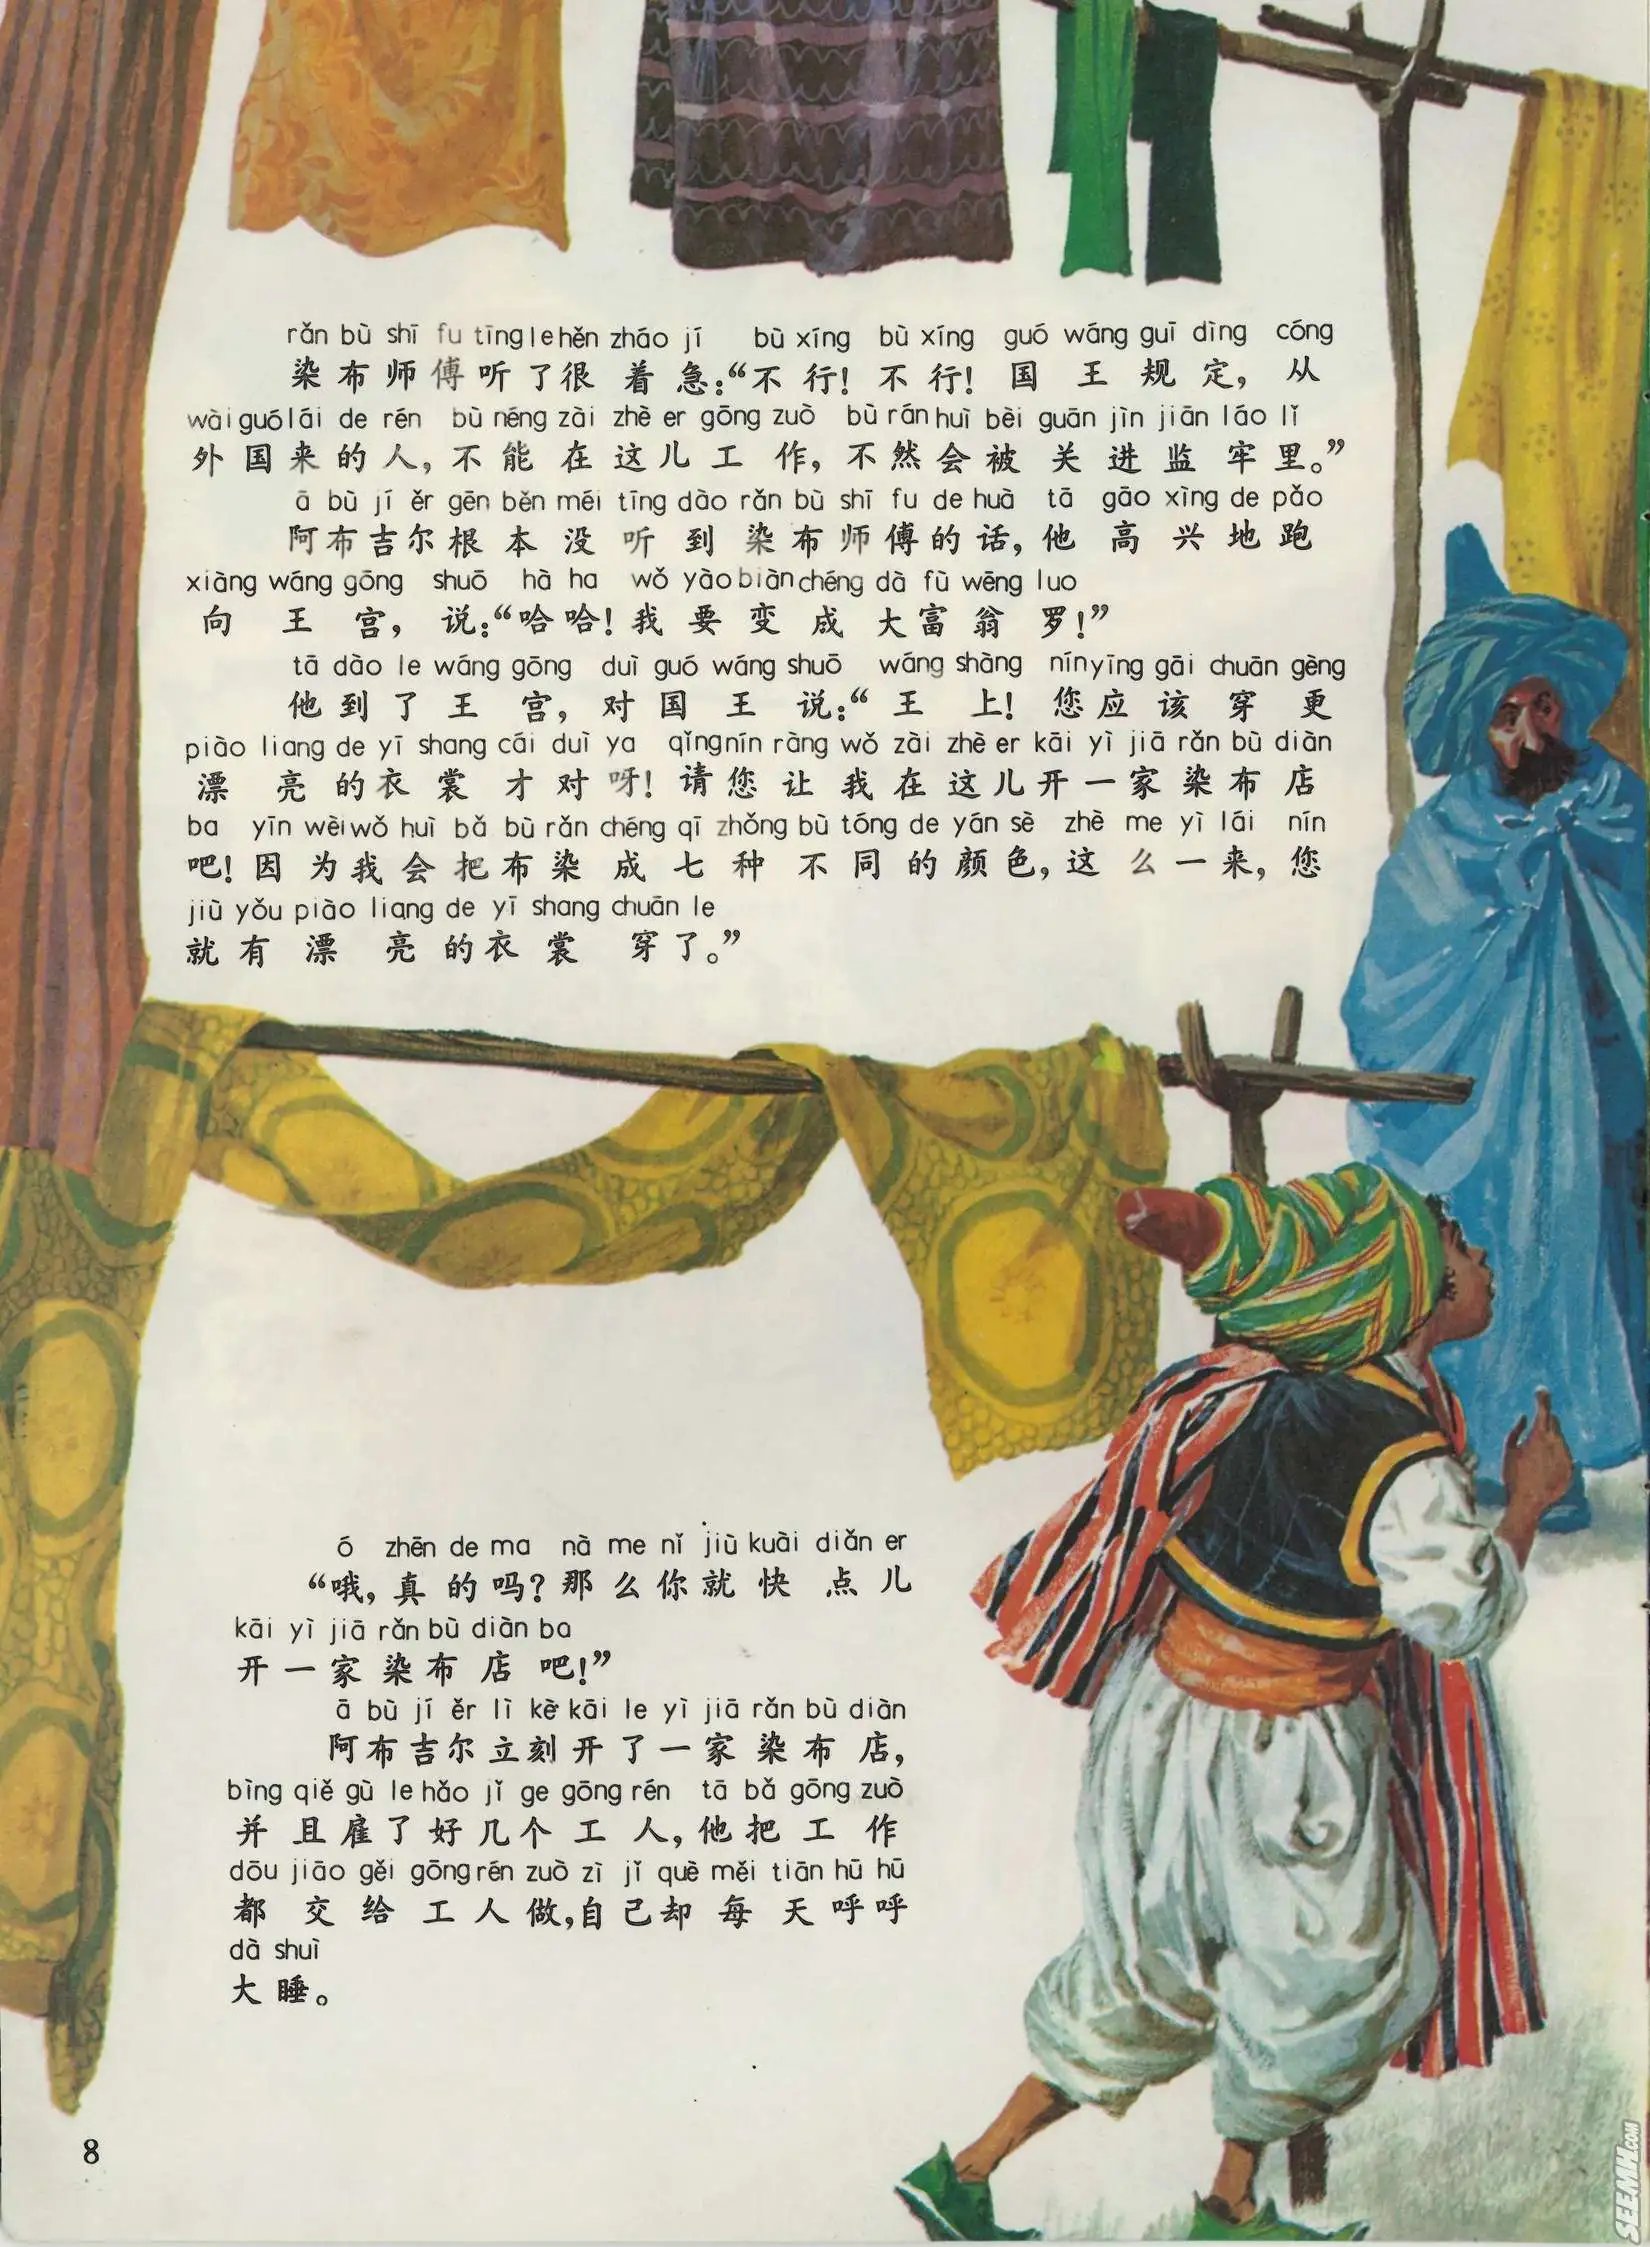 rǎn bù shī fu tīng le hěn zháo jí bù xíng bù xíng guó wáng guī dìng cóng
染布师傅听了很着急:“不行!不行!国王规定,从
wài guó lái de rén bù néng zài zhè er gōng zuò bù rán huì bèi guān jìn jiān láo lǐ
外国来的人,不能在这儿工作,不然会被关进监牢里。”
ā bù jí ěr gēn běn méi tīng dào rǎn bù shī fu de huà tā gāo xìng de pǎo
阿布吉尔根本没听到染布师傅的话,他高兴地跑
xiàng wáng gōng shuō hà ha wǒ yào biàn chéng dà fù wēng luo
向王宫,说:“哈哈!我要变成大富翁罗!”
tā dào le wáng gōng duì guó wáng shuō wáng shàng nín yīng gāi chuān gèng
他到了王宫,对国王说:“王上!您应该穿更
piào liang de yī shang cái duì ya qǐng nín ràng wǒ zài zhè er kāi yì jiā rǎn bù diàn
漂亮的衣裳才对呀!请您让我在这儿开一家染布店
ba yīn wèi wǒ huì bǎ bù rǎn chéng qī zhǒng bù tóng de yán sè zhè me yì lái nín
吧!因为我会把布染成七种不同的颜色,这么一来,您
jiù yǒu piào liang de yī shang chuān le
就有漂亮的衣裳穿了。”
ó zhēn de ma nà me nǐ jiù kuài diǎn er
“哦,真的吗?那么你就快点儿
kāi yì jiā rǎn bù diàn ba
开一家染布店吧!”
ā bù jí ěr lì kè kāi le yì jiā rǎn bù diàn
阿布吉尔立刻开了一家染布店,
bìng qiě gù le hǎo jǐ ge gōng rén tā bǎ gōng zuò
并且雇了好几个工人,他把工作
dōu jiāo gěi gōng rén zuò zì jǐ què měi tiān hū hū
都交给工人做,自己却每天呼呼
dà shuì
大睡。
8
SEEMH.COM